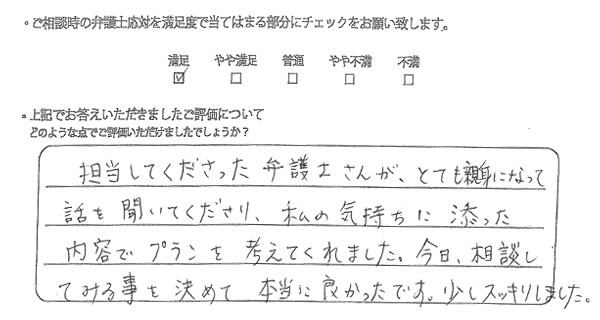 ・ご相談時の弁護士応対を満足度で当てはまる部分にチェックをお願い致します。
満足 やや満足 普通 やや不満 不満
☑ □ □ □ □
・上記でお答えいただきましたご評価について
どのような点でご評価いただけましたでしょうか？
担当してくださった弁護士さんが、とても親身になって
話を聞いてくださり、私の気持ちに添った
内容でプランを考えてくれました。今日、相談し
てみる事を決めて本当に良かったです。少しスッキリしました。